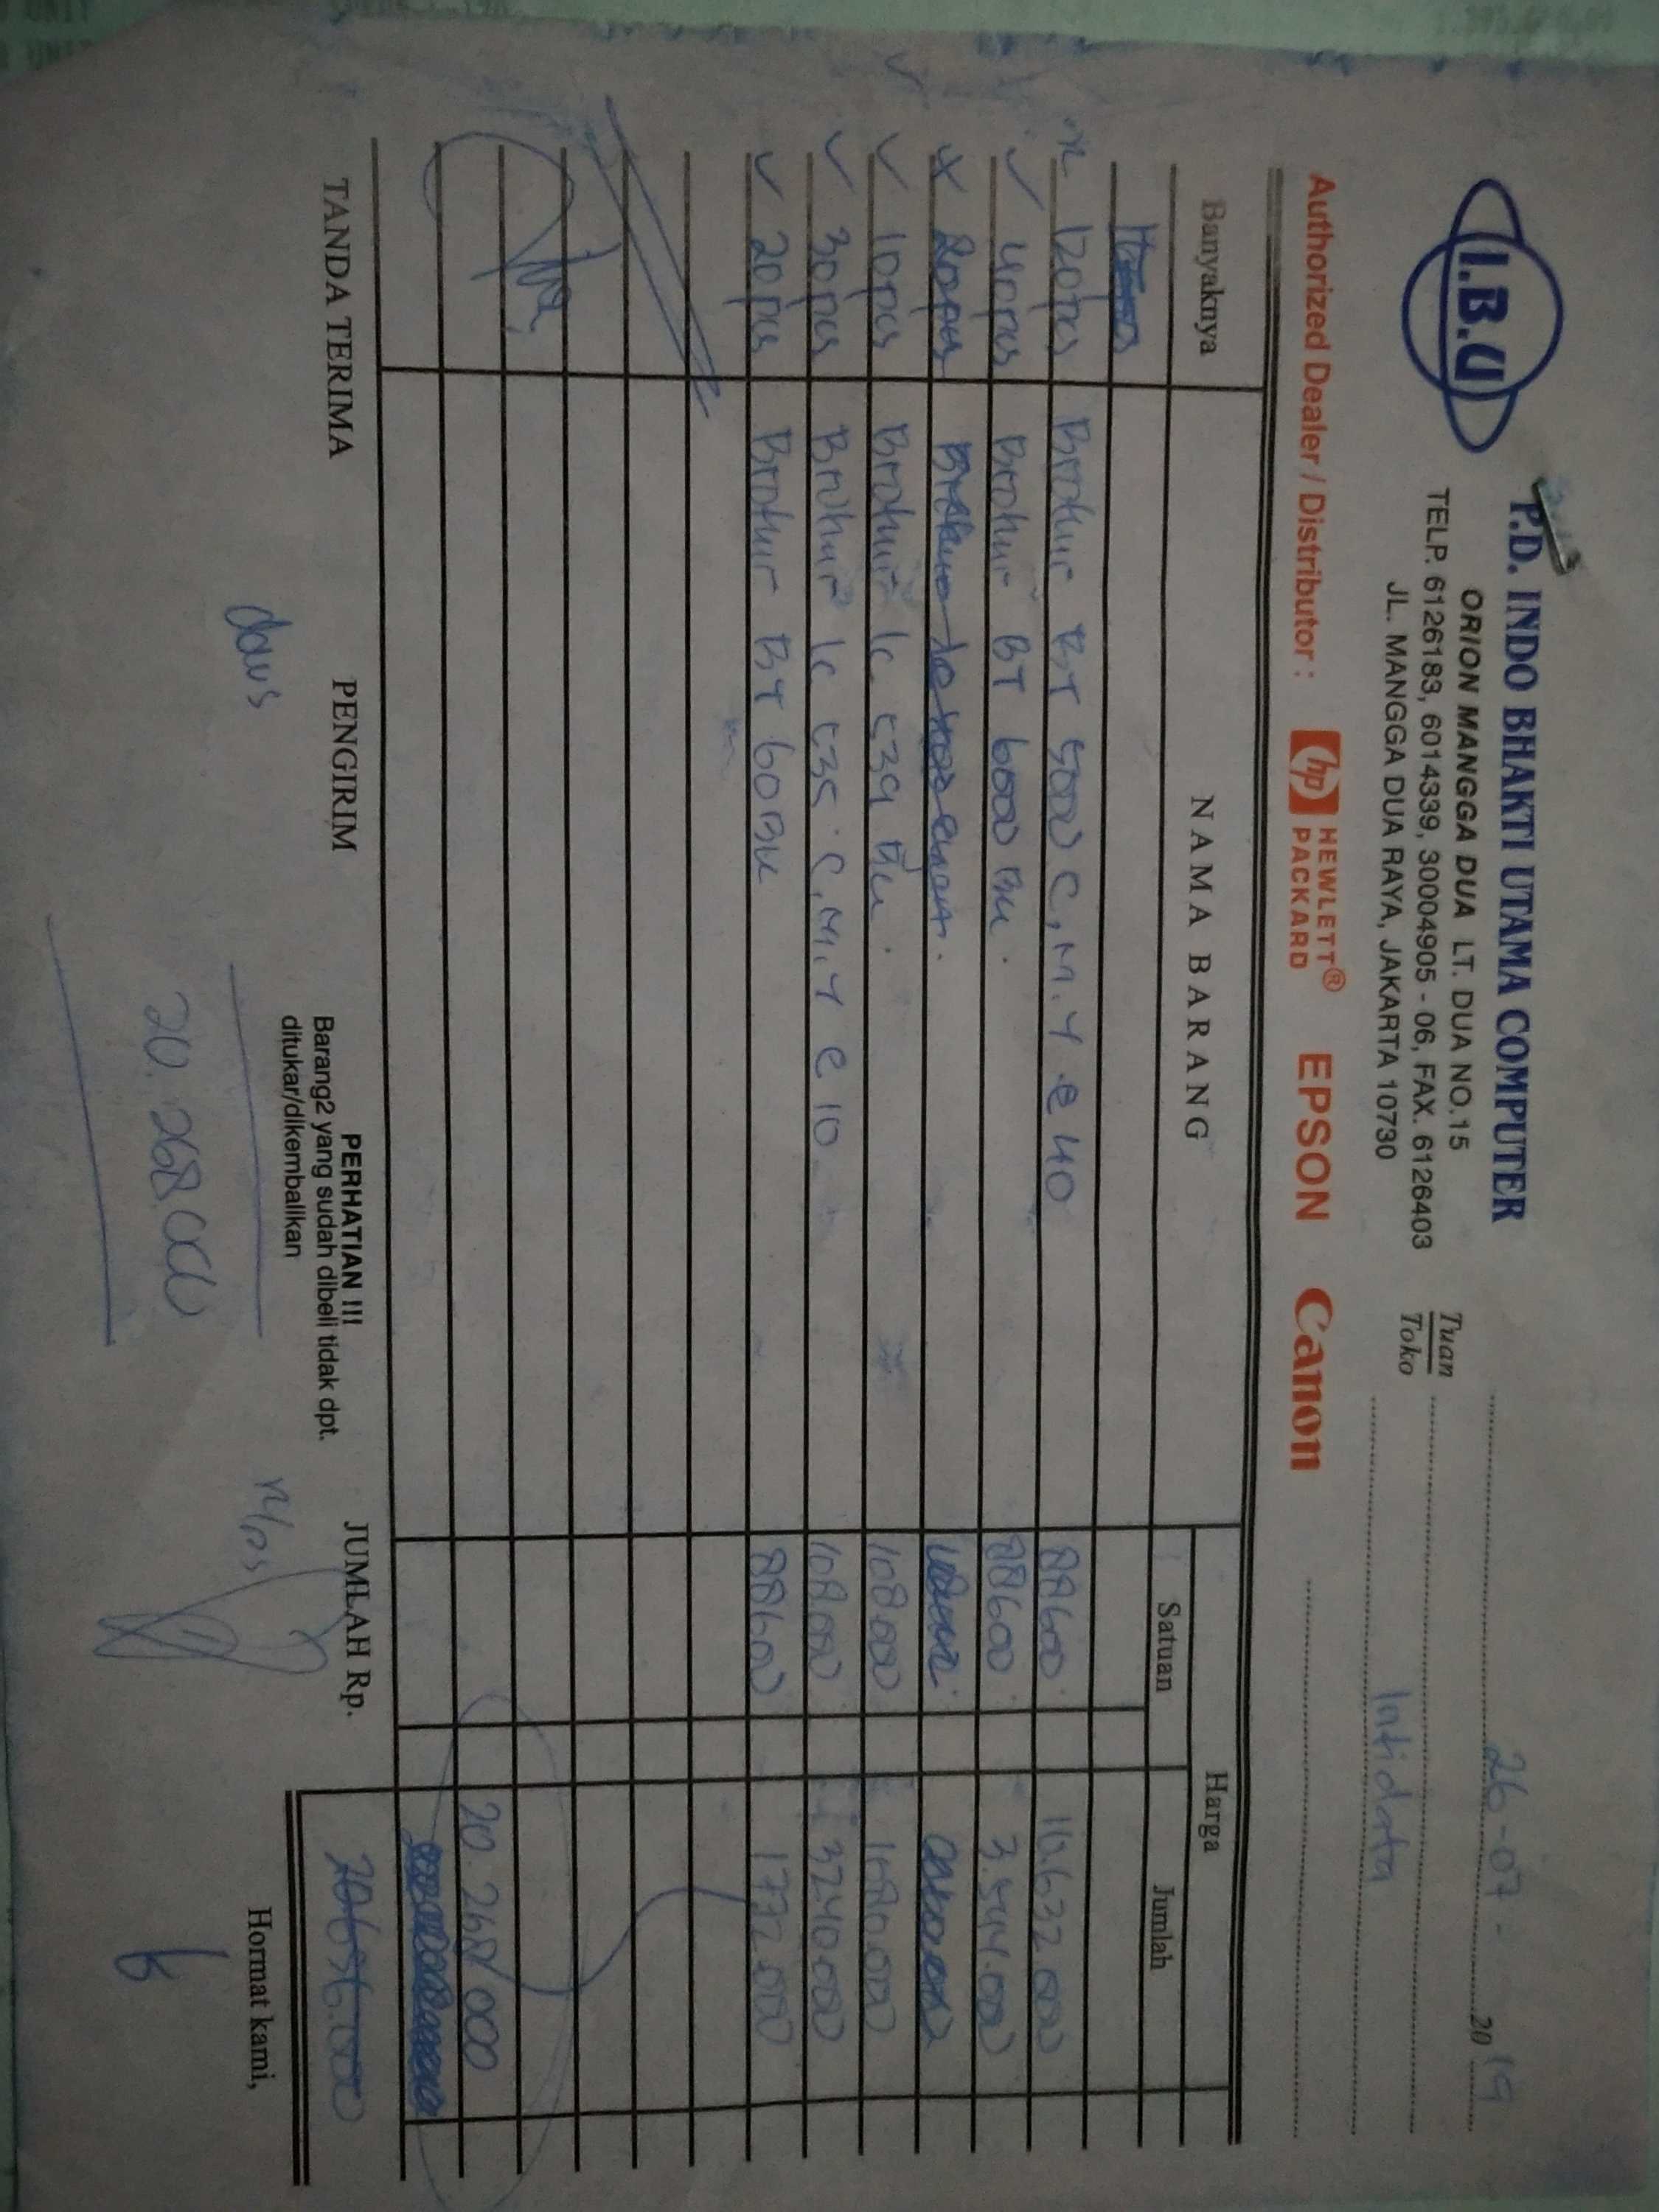 26-07- 2019
I.B.U
P.D. INDO BHAKTI UTAMA COMPUTER
ORION MANGGA DUA LT. DUA NO.15
TELP. 6126183, 6014339, 30004905 - 06, FAX. 6126403
JL. MANGGA DUA RAYA, JAKARTA 10730
Tuan
Toko
Intidata
Authorized Dealer / Distributor : hp HEWLETT® PACKARD EPSON Canon
Banyaknya NAMA BARANG Harga
Satuan Jumlah
120pcs Brother BT 5000 C, M, Y @ 40 88600 10.632.000
40pcs Brother BT 6000 BK. 88600 3.544.000
20pcs
10pcs Brother LC 539 BK. 108.000 1.080.000
30pcs Brother LC 535. C, M, Y @ 10 108.000 3.240.000
20pcs Brother BT 60BK 88600 1.772.000
20.268.000
TANDA TERIMA PENGIRIM PERHATIAN !!! JUMLAH Rp.
Barang2 yang sudah dibeli tidak dpt.
ditukar/dikembalikan
Hormat kami,
20.268.000